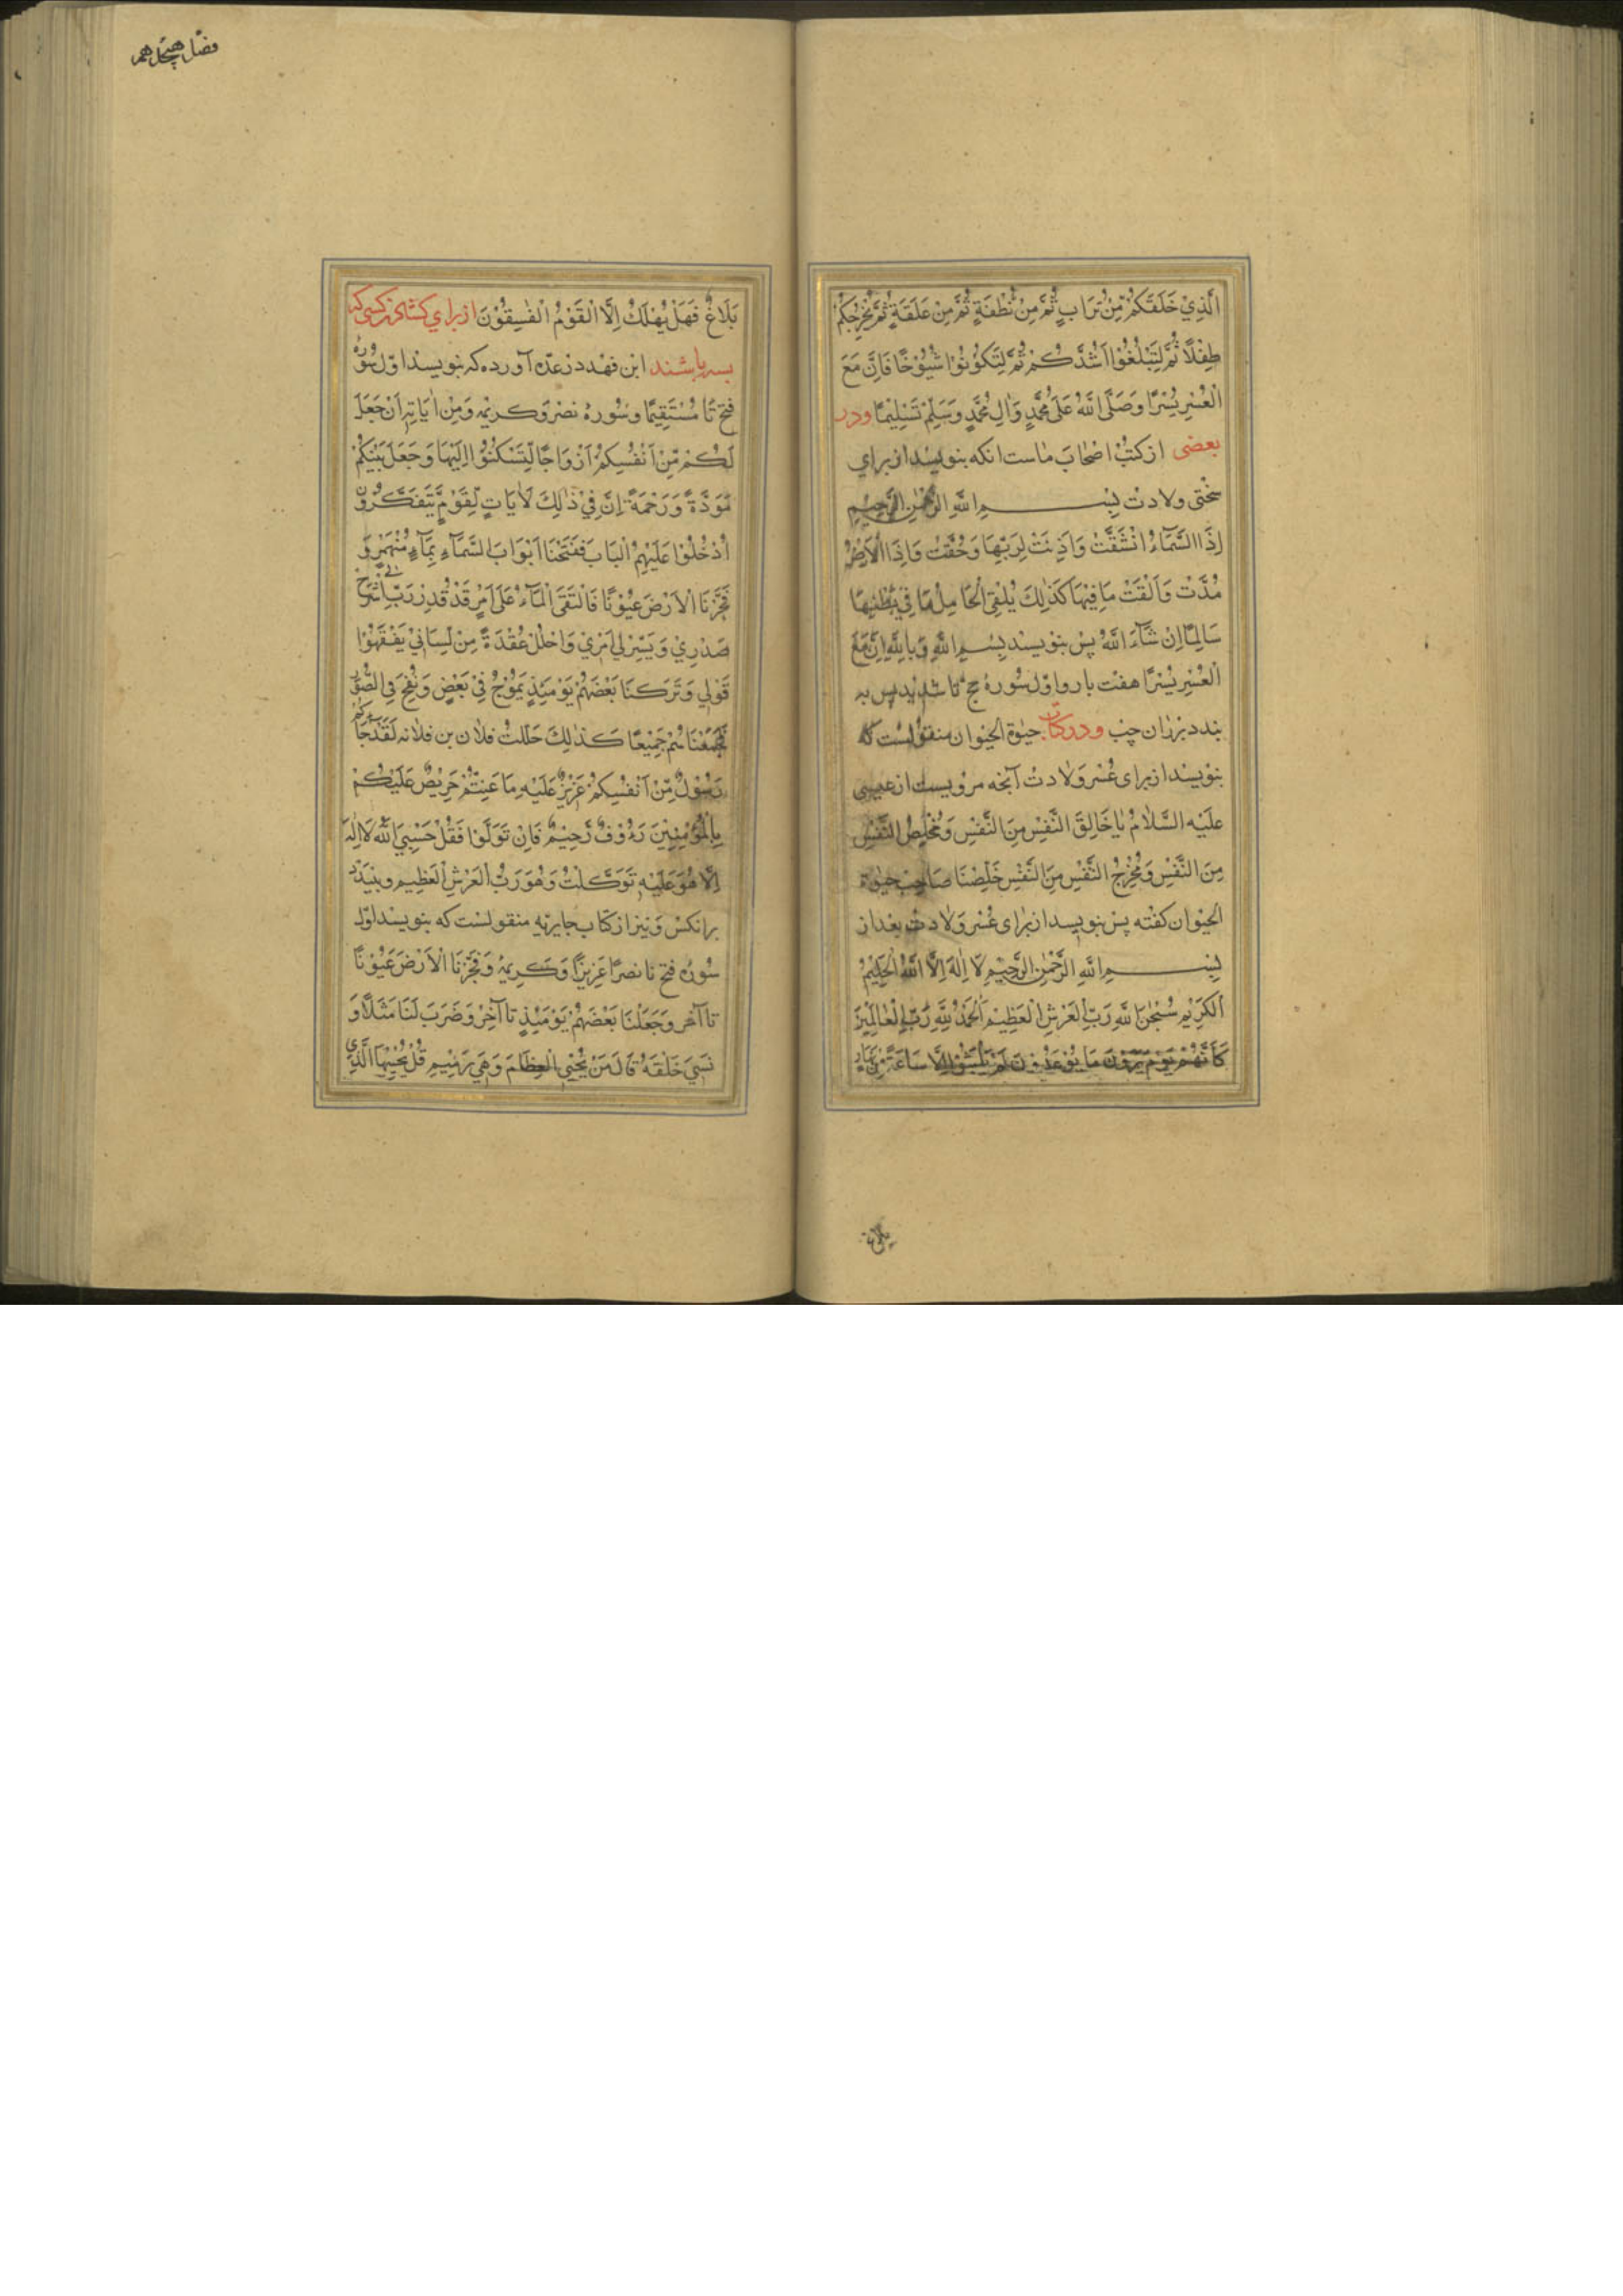 الَّذِيْ خَلَقَكُمْ مِّنْ تُرَابٍ ثُمَّ مِنْ نُّطْفَةٍ ثُمَّ مِنْ عَلَقَةٍ ثُمَّ يُخْرِجُكُمْ
طِفْلًا ثُمَّ لِتَبْلُغُوْا اَشُدَّكُمْ ثُمَّ لِتَكُوْنُوْا شُيُوْخًا فَاِنَّ مَعَ
الْعُسْرِ يُسْرًا وَصَلَّى اللّٰهُ عَلٰى مُحَمَّدٍ وَاٰلِ مُحَمَّدٍ وَسَلِّمْ تَسْلِيْمًا ودر
بعضى از كتب اصحاب ماست انكه بنويسد از براي
سختى ولادت بِسْمِ اللّٰهِ الرَّحْمٰنِ الرَّحِيْمِ
اِذَا السَّمَآءُ انْشَقَّتْ وَاَذِنَتْ لِرَبِّهَا وَحُقَّتْ وَاِذَا الْاَرْضُ
مُدَّتْ وَاَلْقَتْ مَا فِيْهَا كَذٰلِكَ يُلْقِى الْحَامِلُ مَا فِيْ بَطْنِهَا
سَالِمًا اِنْ شَآءَ اللّٰهُ پس بنويسد بِسْمِ اللّٰهِ وَبِاللّٰهِ اِنَّ مَعَ
الْعُسْرِ يُسْرًا هفت بار و اوّل سُورهٔ حج تا شديد پس به
بندد بر ران چپ ودر كتاب حيٰوة الحيوان منقولست كه
بنويسد از براى عُسر وَلادت آنچه مرويست از عيسى
عليه السّلام يَا خَالِقَ النَّفْسِ مِنَ النَّفْسِ وَمُخَلِّصَ النَّفْسِ
مِنَ النَّفْسِ وَمُخْرِجَ النَّفْسِ مِنَ النَّفْسِ خَلِّصْنَا صَاحِب حيٰوة
الحيوان كفته پس بنويسد از براى عُسر وَلادت بعد از
بِسْمِ اللّٰهِ الرَّحْمٰنِ الرَّحِيْمِ لَا اِلٰهَ اِلَّا اللّٰهُ الْحَلِيْمُ
الْكَرِيْمُ سُبْحٰنَ اللّٰهِ رَبِّ الْعَرْشِ الْعَظِيْمِ اَلْحَمْدُ لِلّٰهِ رَبِّ الْعَالَمِيْنَ
كَاَنَّهُمْ يَوْمَ يَرَوْنَ مَا يُوْعَدُوْنَ لَمْ يَلْبَثُوْا اِلَّا سَاعَةً مِّنْ نَّهَارٍ
بلاغ
فصل هيجدهم
بَلَاغٌ فَهَلْ يُهْلَكُ اِلَّا الْقَوْمُ الْفٰسِقُوْنَ از براي كشادن كسى كه
بسته باشند ابن فهد در عدّه آورده كه بنويسد اوّل سُورهٔ
فتح تا مُسْتَقِيْمًا وسُورهٔ نصر وكريمه وَمِنْ اٰيَاتِهٖ اَنْ جَعَلَ
لَكُمْ مِّنْ اَنْفُسِكُمْ اَزْوَاجًا لِّتَسْكُنُوْا اِلَيْهَا وَجَعَلَ بَيْنَكُمْ
مَوَدَّةً وَرَحْمَةً اِنَّ فِيْ ذٰلِكَ لَاٰيَاتٍ لِّقَوْمٍ يَّتَفَكَّرُوْنَ
اُدْخُلُوْا عَلَيْهِمُ الْبَابَ فَفَتَحْنَا اَبْوَابَ السَّمَآءِ بِمَآءٍ مُنْهَمِرٍ وَ
فَجَّرْنَا الْاَرْضَ عُيُوْنًا فَالْتَقَى الْمَآءُ عَلٰى اَمْرٍ قَدْ قُدِرَ رَبِّ اشْرَحْ لِيْ
صَدْرِيْ وَيَسِّرْ لِيْ اَمْرِيْ وَاحْلُلْ عُقْدَةً مِنْ لِّسَانِيْ يَفْقَهُوْا
قَوْلِي وَتَرَكْنَا بَعْضَهُمْ يَوْمَئِذٍ يَمُوْجُ فِيْ بَعْضٍ وَنُفِخَ فِى الصُّوْرِ
فَجَمَعْنَاهُمْ جَمِيْعًا كَذٰلِكَ حَلَلْتُ فلان بن فلانه لَقَدْ جَآءَكُمْ
رَسُوْلٌ مِّنْ اَنْفُسِكُمْ عَزِيْزٌ عَلَيْهِ مَا عَنِتُّمْ حَرِيْصٌ عَلَيْكُمْ
بِالْمُؤْمِنِيْنَ رَءُوْفٌ رَّحِيْمٌ فَاِنْ تَوَلَّوْا فَقُلْ حَسْبِيَ اللّٰهُ لَا اِلٰهَ
اِلَّا هُوَ عَلَيْهِ تَوَكَّلْتُ وَهُوَ رَبُّ الْعَرْشِ الْعَظِيْمِ وببندد
برانكس ونيز از كتاب منقولست كه بنويسد اوّل
سُورهٔ فتح تا نصرًا عَزِيزًا وكريمهٔ وَفَجَّرْنَا الْاَرْضَ عُيُوْنًا
تا آخر وَجَعَلْنَا بَعْضَهُمْ يَوْمَئِذٍ تا آخر وَضَرَبَ لَنَا مَثَلًا وَ
نَسِيَ خَلْقَهُ قَالَ مَنْ يُحْيِى الْعِظَامَ وَهِيَ رَمِيْمٌ قُلْ يُحْيِيْهَا الَّذِيْ